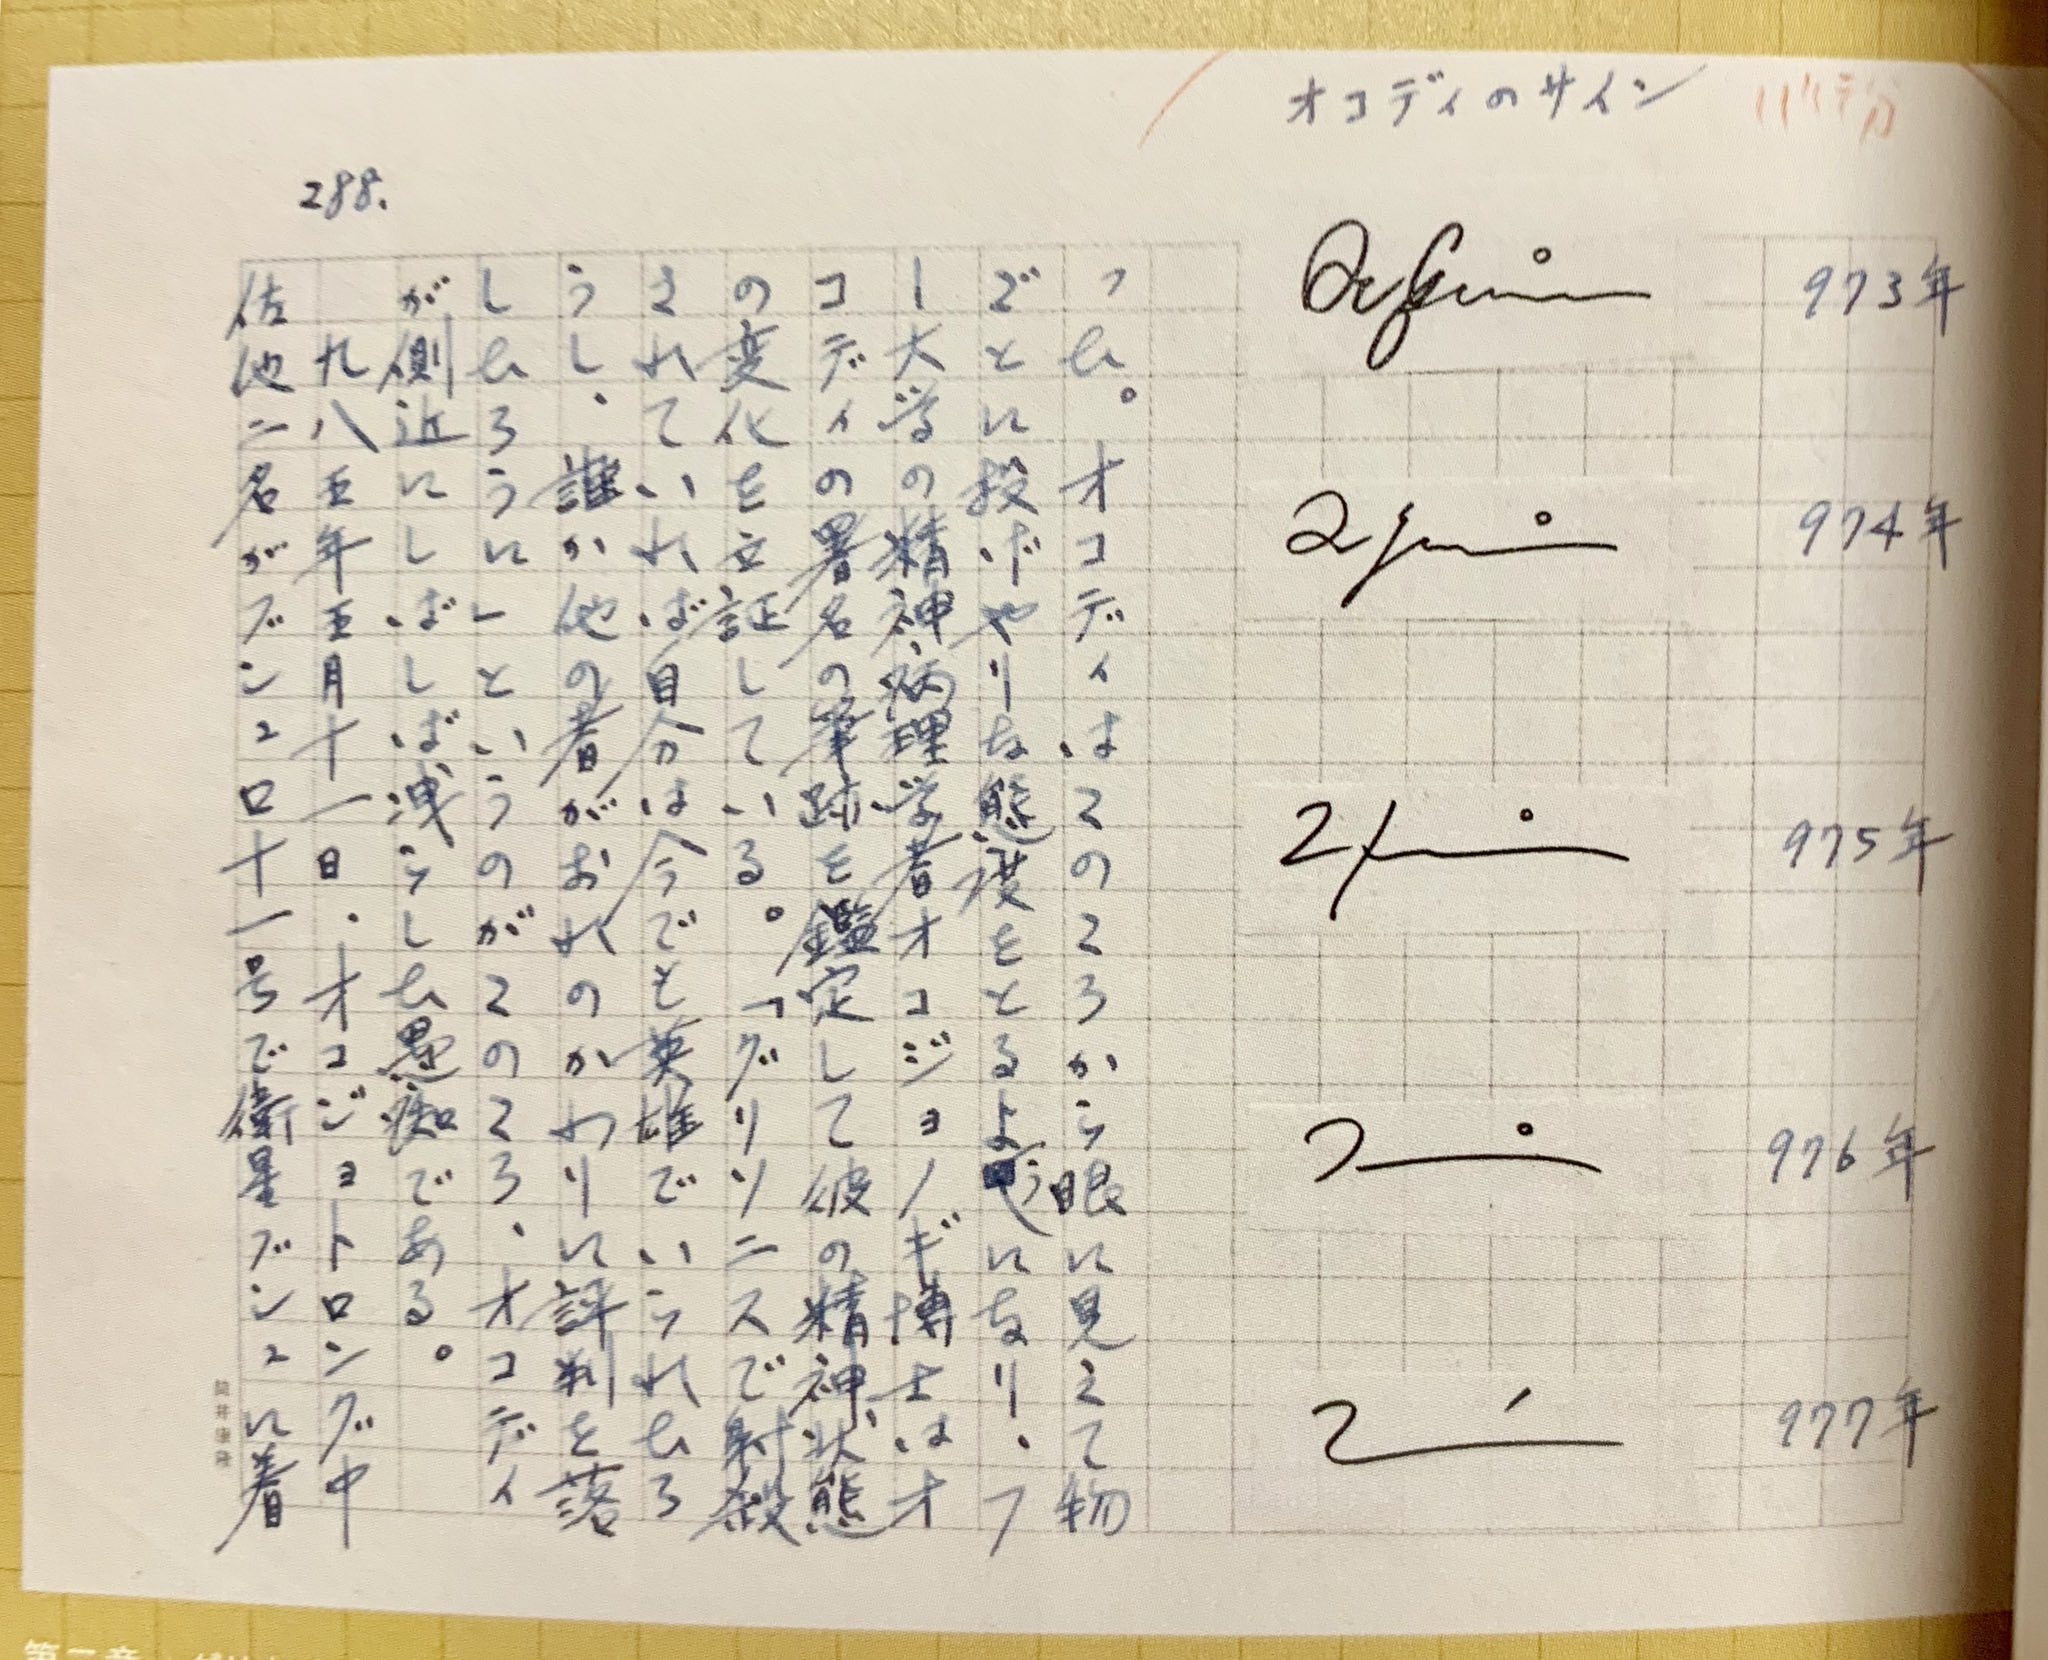 オコディのサイン
973年
974年
975年
976年
977年
288.
った。オコディはこのころから眼に見えて物
ごとに投げやりな態度をとるようになり、フ
ー大学の精神病理学者オコジョノギ博士はオ
コディの署名の筆跡を鑑定して彼の精神状態
の変化を立証している。「グリソニスで射殺
されていれば自分は今でも英雄でいられたろ
うし、誰か他の者がおれのかわりに評判を落
したろうに」というのがこのころ、オコディ
が側近にしばしば洩らした愚痴である。
九八五年五月十一日、オコジョトロング中
佐他二名がブンユロ十一号で衛星ブンユに着
筒井康隆